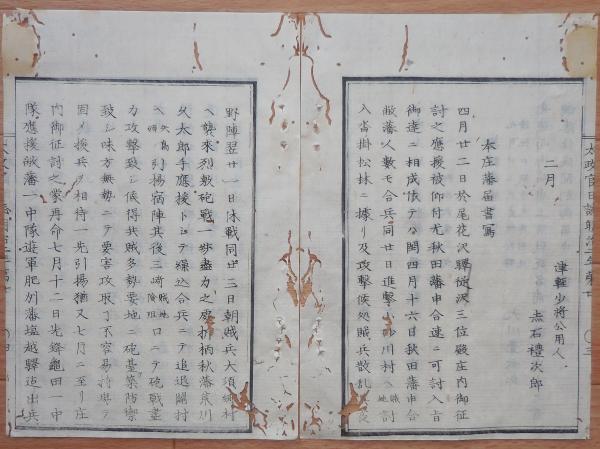 二月
津軽少将公用人
赤石禮次郎
本庄藩届書寫
四月廿二日於尾花沢驛醍沢三位殿庄内御征
討之應援被仰付尤秋田藩申合速ニ可討入旨
御達ニ相成候テハ閏四月十六日秋田藩申合
敝藩人數モ合兵同廿日進撃小砂川村ヘ賊地討
入沓掛松林ニ據リ及攻撃候処賊兵散乱
野陣翌廿一日休戦同廿三日朝賊兵大須郷村
ヘ襲来烈敷砲戦一歩盡力之庻折柄秋藩
久太郎手應援トシテ繰込合兵ニテ追退關村
ヘ引揚宿陣其後三崎口ニテ砲戦盡
力攻撃致シ候得共賊多勢要地ニ砲臺築防禦
致シ味方無勢ニテ要害攻取リ不容易将與テ
固メ援兵ヲ相待一先引揚猶又七月ニ至リ庄
内御征討之蒙再命七月十二日先鋒龜田一中
隊應援敝藩一中隊遊軍肥州藩塩越驛迠出兵